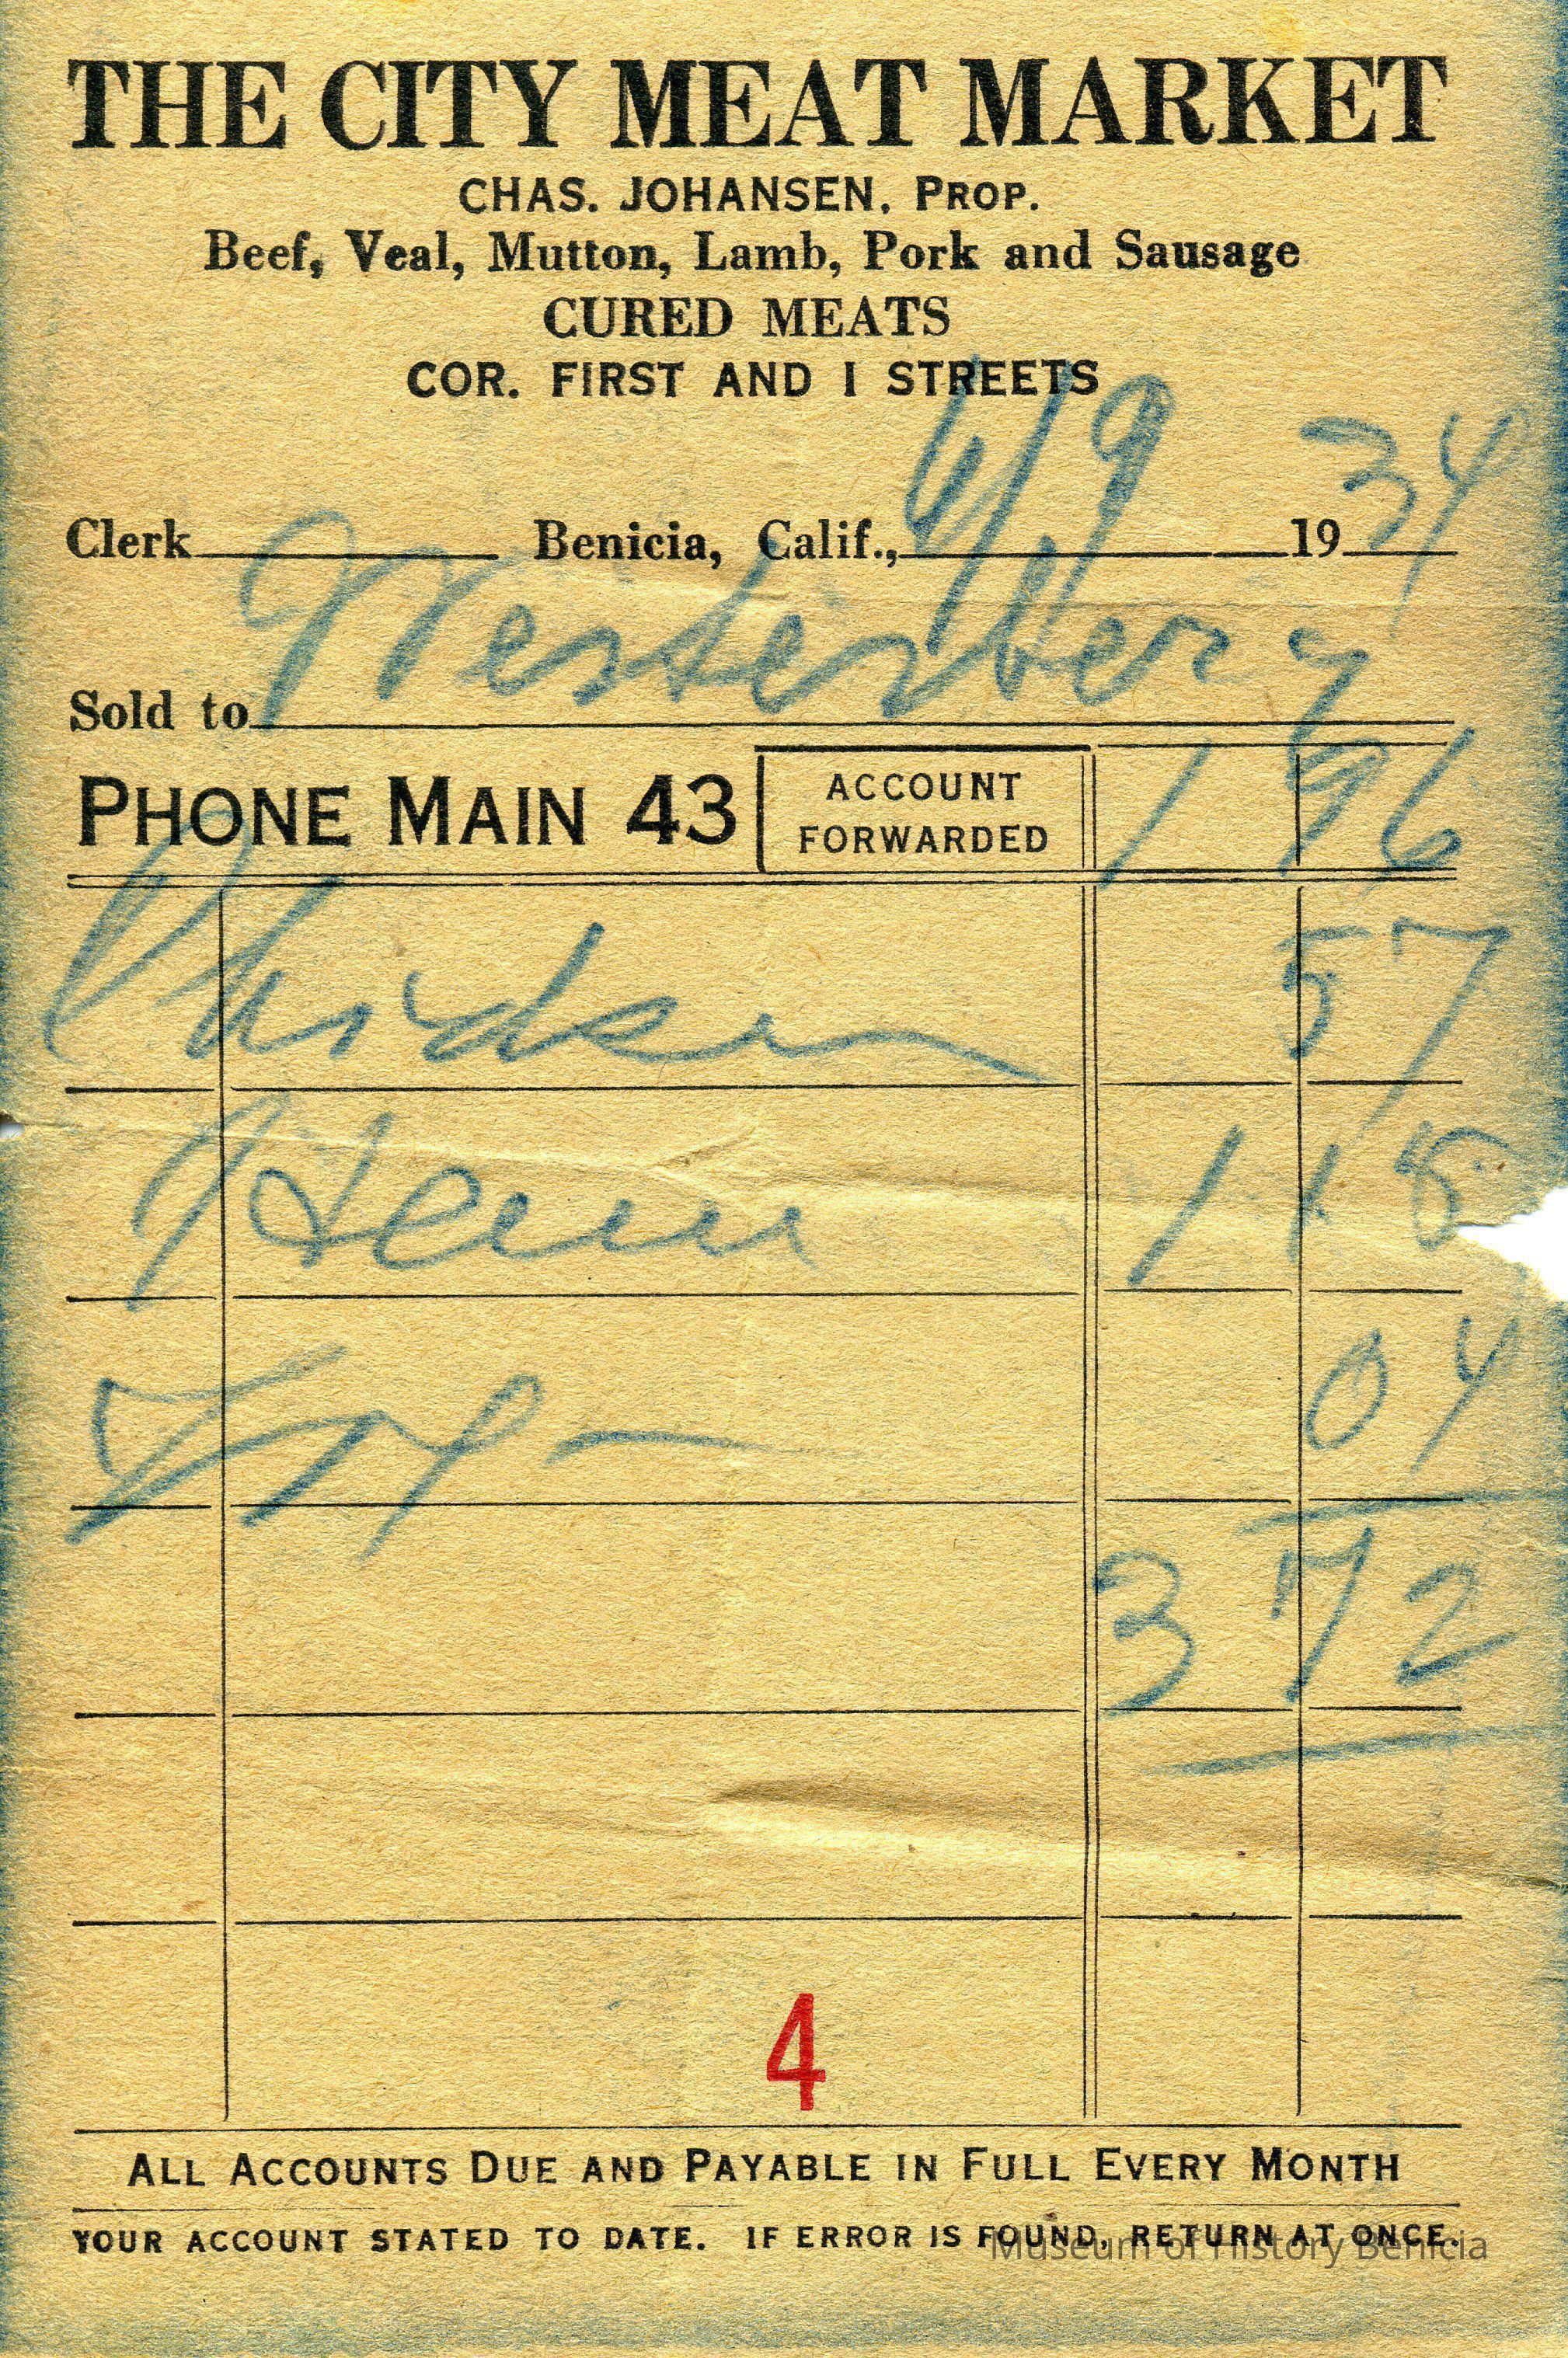 THE CITY MEAT MARKET
CHAS. JOHANSEN, PROP.
Beef, Veal, Mutton, Lamb, Pork and Sausage
CURED MEATS
COR. FIRST AND I STREETS
Clerk Benicia, Calif., 6/9 1934
Sold to Westerberg
PHONE MAIN 43 ACCOUNT FORWARDED 1 96
Chicken 57
1 15
Tax — 04
3 72
4
ALL ACCOUNTS DUE AND PAYABLE IN FULL EVERY MONTH
YOUR ACCOUNT STATED TO DATE. IF ERROR IS FOUND, RETURN AT ONCE.
Museum of History Benicia